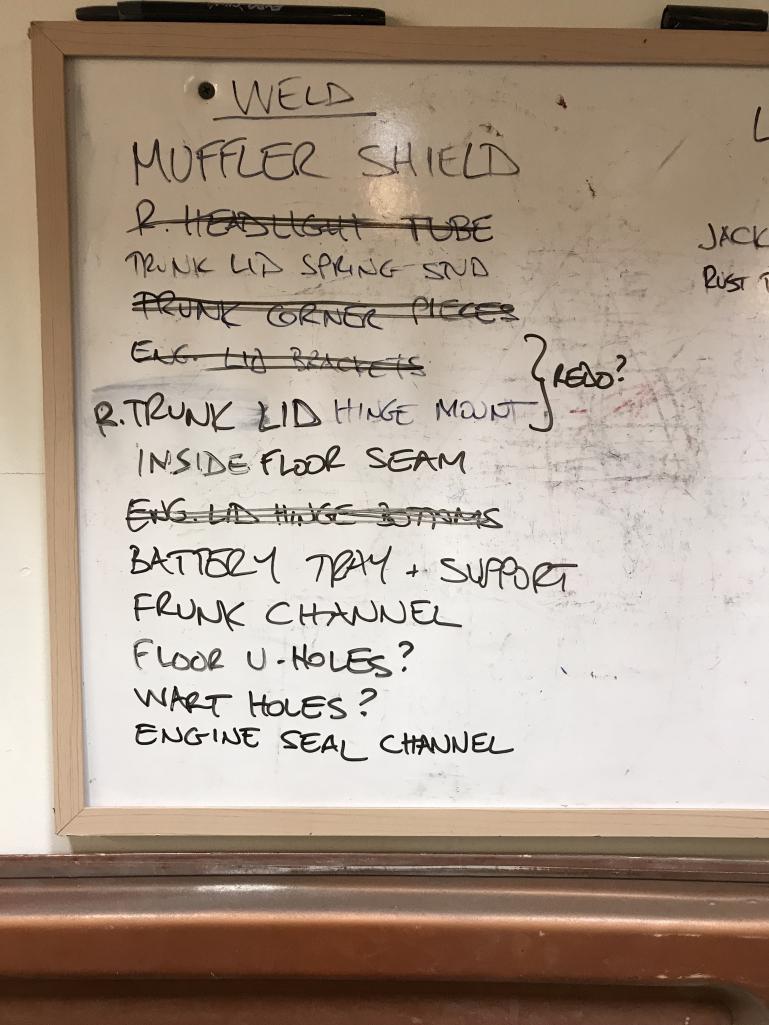 WELD
MUFFLER SHIELD
R. HEADLIGHT TUBE
TRUNK LID SPRING STUD
TRUNK CORNER PIECES
ENG. LID BRACKETS
REDO?
R. TRUNK LID HINGE MOUNT
INSIDE FLOOR SEAM
ENG. LID HINGE BOTTOMS
BATTERY TRAY + SUPPORT
FRUNK CHANNEL
FLOOR U-HOLES?
WART HOLES?
ENGINE SEAL CHANNEL
L
JACK
RUST